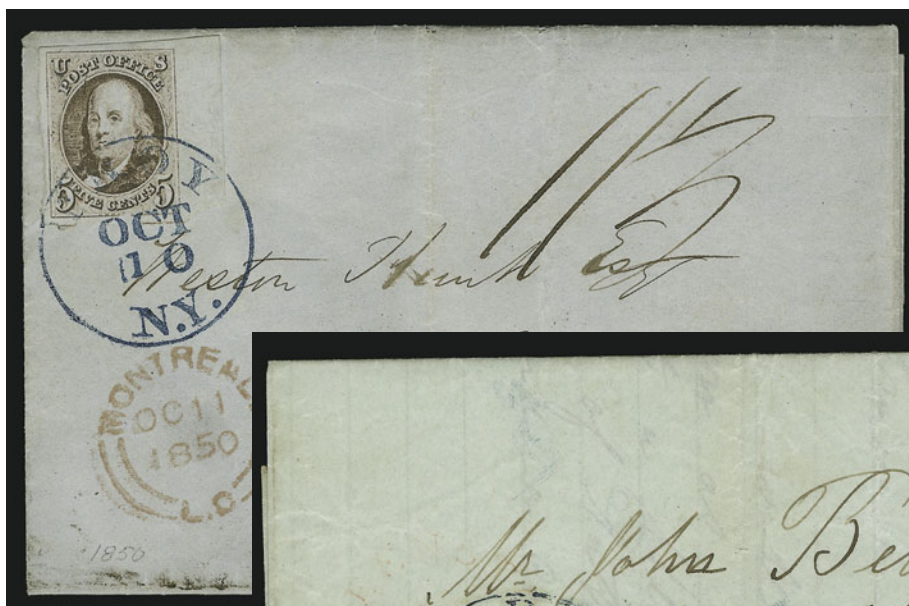 U S
POST OFFICE
5 FIVE CENTS 5
TROY
OCT
10
N.Y.
11/3
Weston Hunt Esqr
MONTREAL
OC 11
1850
L.C
1850
Mr John